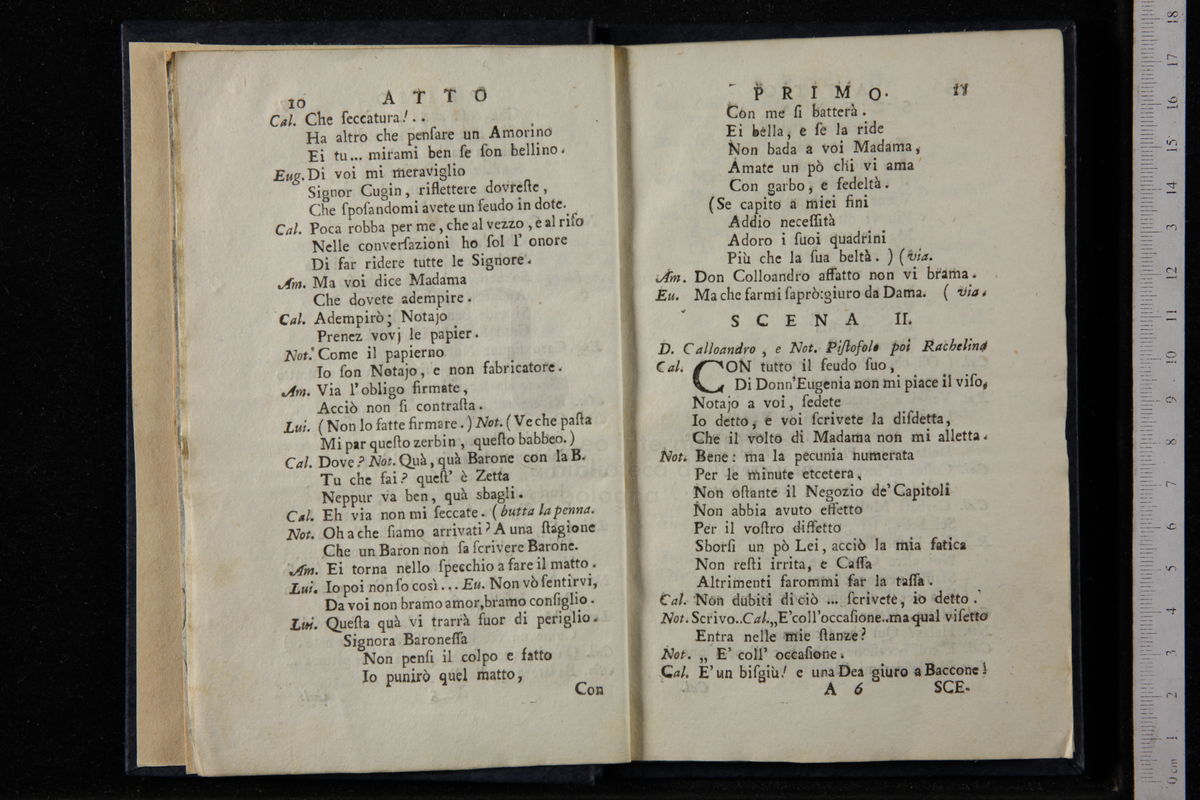 10 ATTO
Cal. Che ſeccatura!..
Ha altro che penſare un Amorino
Ei tu... mirami ben ſe ſon bellino.
Eug. Di voi mi meraviglio
Signor Cugin, riflettere dovreſte,
Che ſpoſandomi avete un feudo in dote.
Cal. Poca robba per me, che al vezzo, e al riſo
Nelle converſazioni ho ſol l' onore
Di far ridere tutte le Signore.
Am. Ma voi dice Madama
Che dovete adempire.
Cal. Adempirò; Notajo
Prenez vovj le papier.
Not. Come il papierno
Io ſon Notajo, e non fabricatore.
Am. Via l'obligo firmate,
Acciò non ſi contraſta.
Lui. (Non lo fatte firmare.) Not. (Ve che paſta
Mi par queſto zerbin, queſto babbeo.)
Cal. Dove? Not. Quà, quà Barone con la B.
Tu che fai? queſt' è Zetta
Neppur va ben, quà sbagli.
Cal. Eh via non mi ſeccate. (butta la penna.
Not. Oh a che ſiamo arrivati? A una ſtagione
Che un Baron non ſa ſcrivere Barone.
Am. Ei torna nello ſpecchio a fare il matto.
Lui. Io poi non ſo così... Eu. Non vò ſentirvi,
Da voi non bramo amor, bramo conſiglio.
Lui. Queſta quà vi trarrà fuor di periglio.
Signora Baroneſſa
Non penſi il colpo e fatto
Io punirò quel matto,
Con
PRIMO. 11
Con me ſi batterà.
Ei bella, e ſe la ride
Non bada a voi Madama,
Amate un pò chi vi ama
Con garbo, e fedeltà.
(Se capito a miei fini
Addio neceſſità
Adoro i ſuoi quadrini
Più che la ſua beltà.) (via.
Am. Don Colloandro affatto non vi brama.
Eu. Ma che farmi ſaprò: giuro da Dama. ( via.
SCENA II.
D. Calloandro, e Not. Piſtofolo poi Rachelina
Cal. CON tutto il feudo ſuo,
Di Donn'Eugenia non mi piace il viſo,
Notajo a voi, ſedete
Io detto, e voi ſcrivete la diſdetta,
Che il volto di Madama non mi alletta.
Not. Bene: ma la pecunia numerata
Per le minute etcetera,
Non oſtante il Negozio de' Capitoli
Non abbia avuto effetto
Per il voſtro diffetto
Sborſi un pò Lei, acciò la mia fatica
Non reſti irrita, e Caſſa
Altrimenti farommi far la taſſa.
Cal. Non dubiti di ciò ... ſcrivete, io detto.
Not. Scrivo.. Cal. „E' coll'occaſione.. ma qual viſetto
Entra nelle mie ſtanze?
Not. „ E' coll' occaſione.
Cal. E' un biſgiù! e una Dea giuro a Baccone!
A 6 SCE-